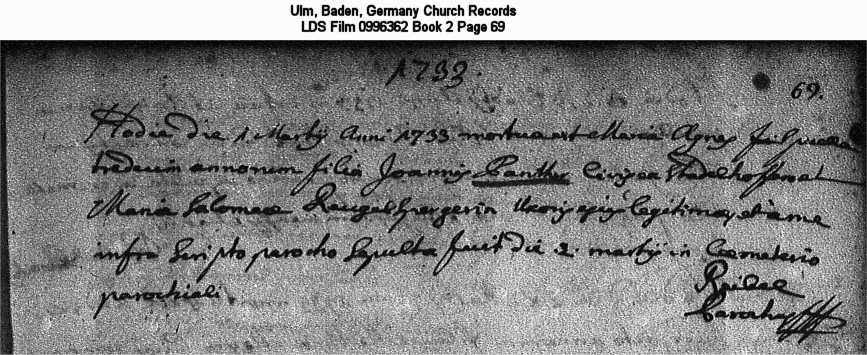 Ulm, Baden, Germany Church Records
LDS Film 0996362 Book 2 Page 69
1733.
69.
Hodie die 1. Martij Anni 1733 mortua est Maria Agnes fuit puella
tredecim annorum filia Joannis Panther Civis ex Stadelhoffen et
Maria Salomeae Uxoris ejus legitimae, et a me
infra scripto parocho sepulta fuit die 2. martij in Coemeterio
parochiali.
Parochus